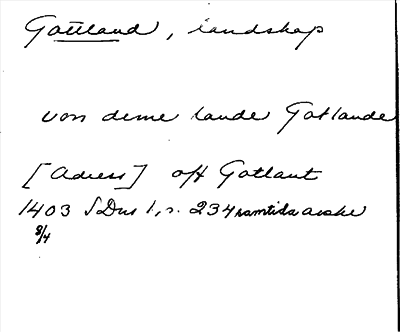 Gottland, landskap
von deme lande Gotlande
[Adress] off Gotlant
1403 SDns 1, s. 234 samtida avskr
8/4